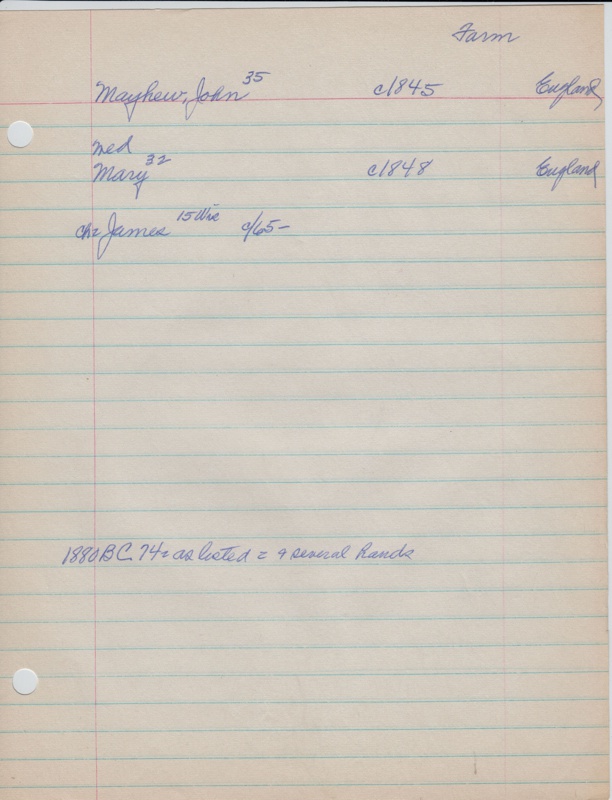 Farm
Mayhew, John 35 c1845 England
med
Mary 32 c1848 England
ch= James 15 Wis c/65-
1880 BC 74= as listed = & several hands